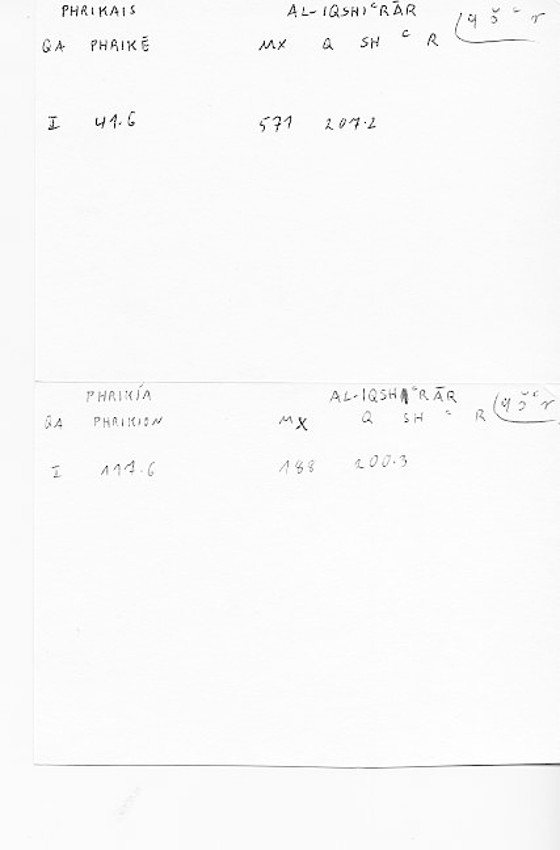 PHRIKAIS AL-IQSHIᶜRĀR (q š ᶜ r
QA PHRIKĒ MX Q SH ᶜ R
I 41.6 571 207.2
PHRIKÍA AL-IQSHIᶜRĀR (q š ᶜ r
QA PHRIKION MX Q SH ᶜ R
I 117.6 188 200.3